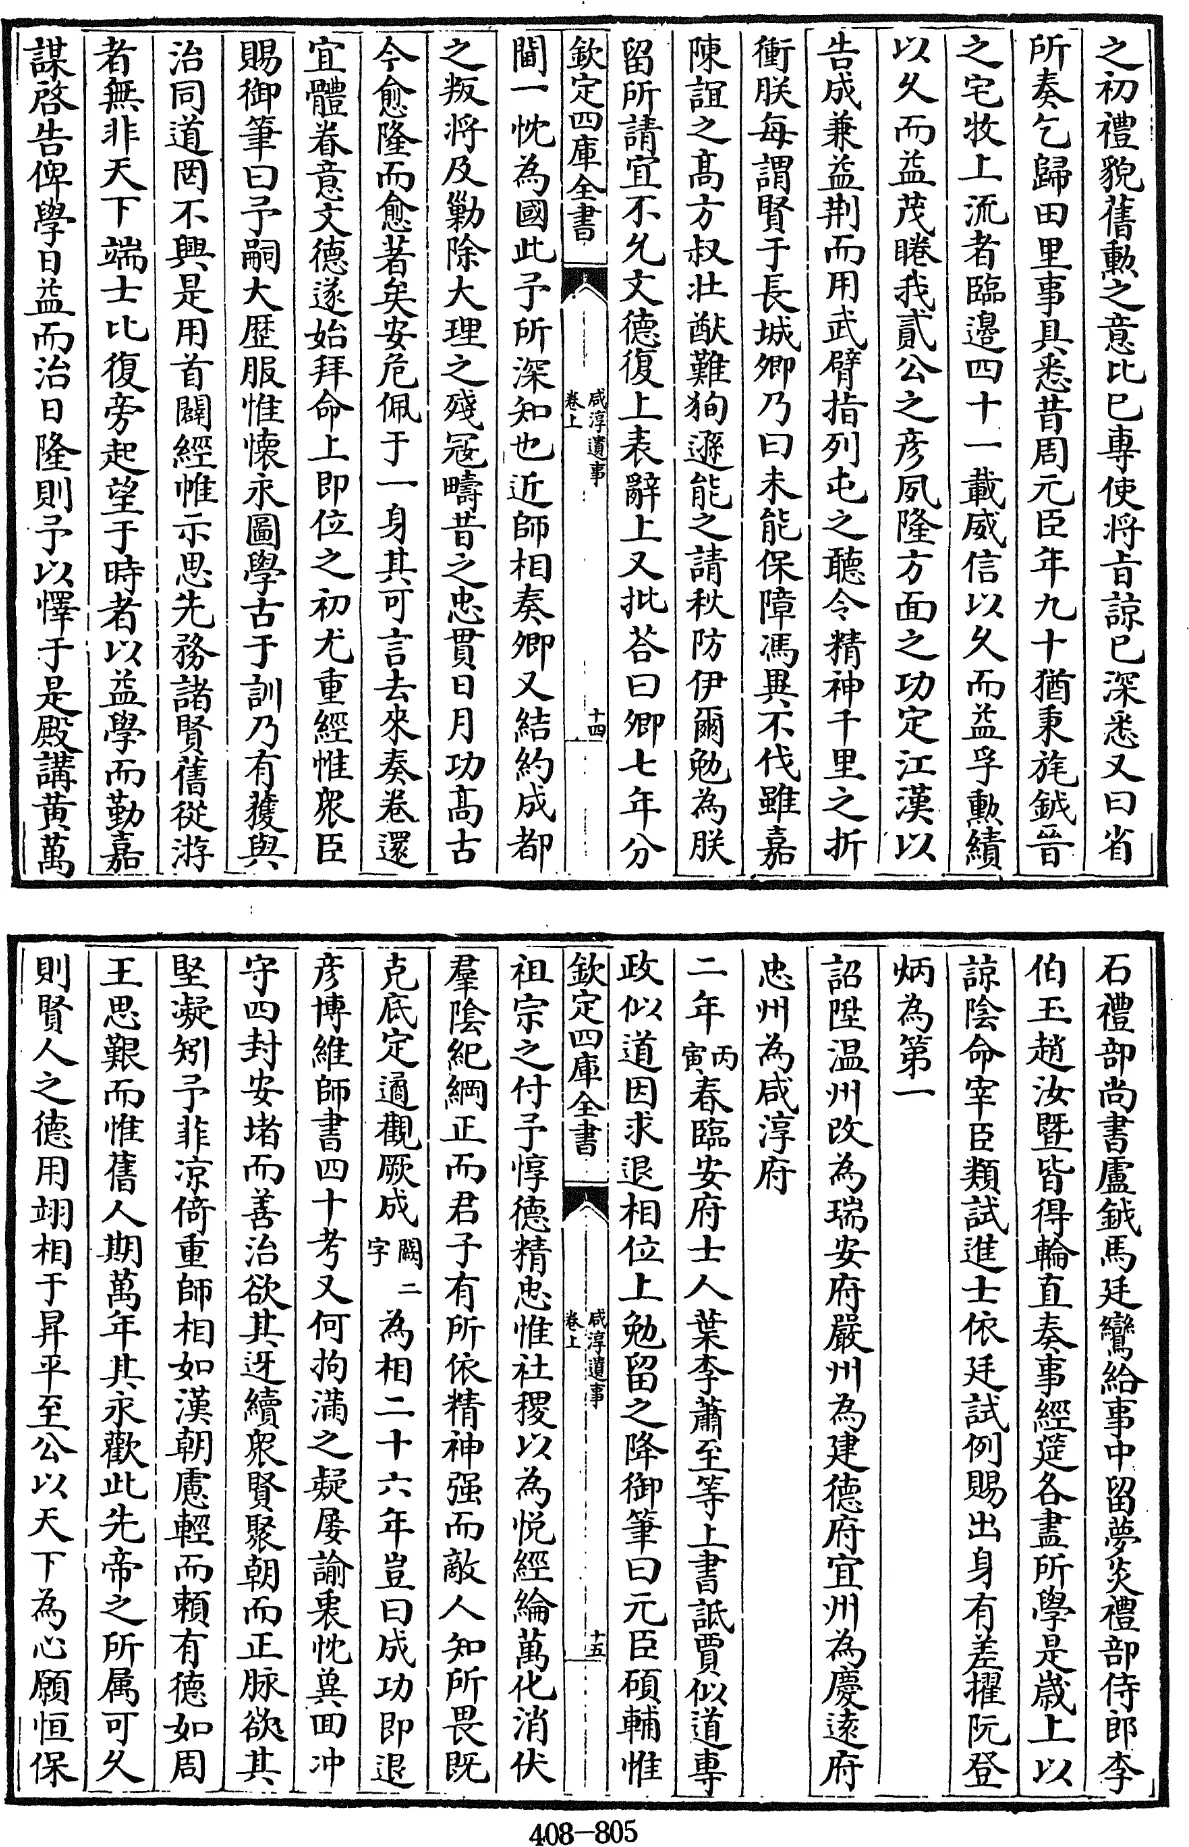 之初禮貌舊勲之意比已專使將㫖諒已深悉又曰省
所奏乞歸田里事具悉昔周元臣年九十猶秉旄鉞晉
之宅牧上流者臨邊四十一載威信以久而益孚勲績
以久而益茂睠我貳公之彦夙隆方面之功定江漢以
告成兼益荆而用武臂指列屯之聽令精神千里之折
衝朕每謂賢于長城卿乃曰未能保障馮異不伐雖嘉
陳誼之髙方叔壯猷難狥遜能之請秋防伊爾勉為朕
留所請宜不允文德復上表辭上又批荅曰卿七年分
欽定四庫全書
咸淳遺事
卷上
十四
閫一忱為國此予所深知也近師相奏卿又結約成都
之叛將及勦除大理之殘冦疇昔之忠貫日月功髙古
今愈隆而愈著矣安危佩于一身其可言去來奏卷還
宜體眷意文德遂始拜命上即位之初尤重經帷衆臣
賜御筆曰予嗣大歴服惟懐永圖學古于訓乃有獲與
治同道罔不興是用首闢經帷示思先務諸賢舊從游
者無非天下端士比復旁起望于時者以益學而勤嘉
謀啓告俾學日益而治日隆則予以懌于是殿講黄萬
石禮部尚書盧鉞馬廷鸞給事中留夢炎禮部侍郎李
伯玉趙汝暨皆得輪直奏事經筵各盡所學是歲上以
諒陰命宰臣類試進士依廷試例賜出身有差擢阮登
炳為第一
詔陞温州改為瑞安府嚴州為建德府宜州為慶逺府
忠州為咸淳府
二年丙寅春臨安府士人葉李蕭至等上書詆賈似道專
政似道因求退相位上勉留之降御筆曰元臣碩輔惟
欽定四庫全書
咸淳遺事
卷上
十五
祖宗之付予惇德精忠惟社稷以為悦經綸萬化消伏
羣陰紀綱正而君子有所依精神强而敵人知所畏既
克底定遹觀厥成闕二字為相二十六年豈曰成功即退
彦博維師書四十考又何拘滿之疑屡諭衷忱冀回冲
守四封安堵而善治欲其迓續衆賢聚朝而正脉欲其
堅凝矧予菲凉倚重師相如漢朝慮輕而賴有德如周
王思艱而惟舊人期萬年其永歡此先帝之所属可久
則賢人之德用翊相于昇平至公以天下為心願恒保
408-805